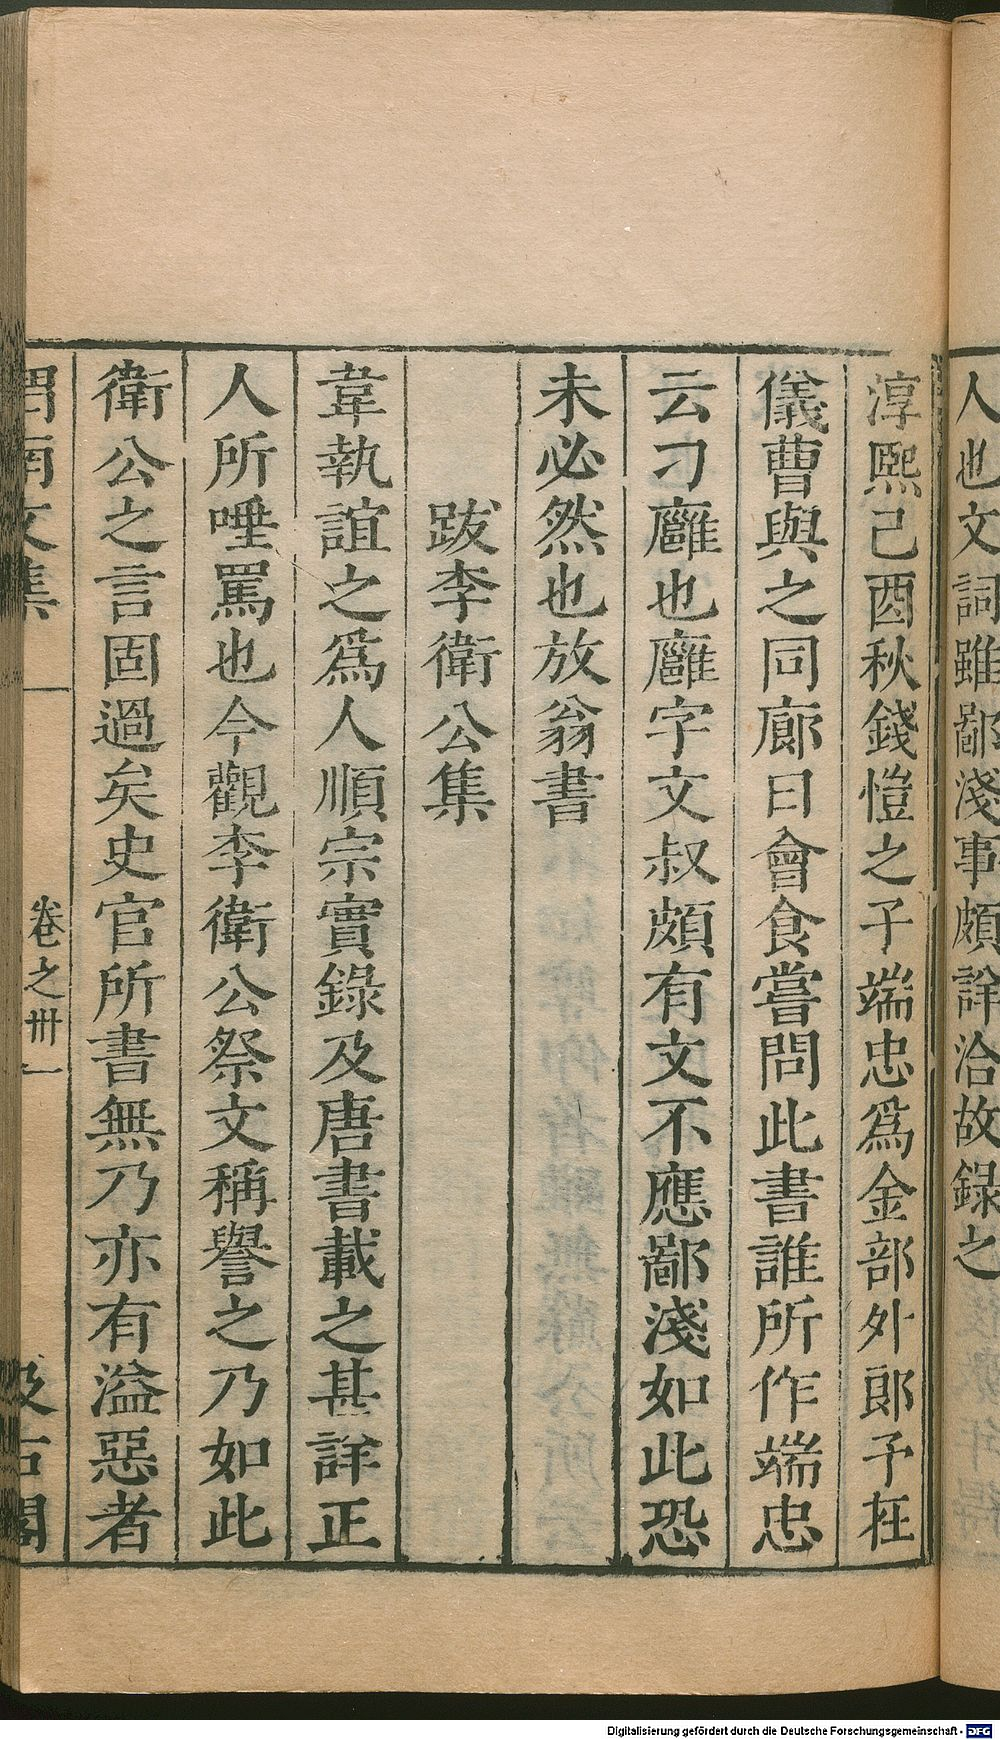 人也文詞雖鄙淺事頗詳洽故録之
淳熙己酉秋錢愷之子端忠爲金部外郎予在
儀曹與之同廊日會食嘗問此書誰所作端忠
云刁廱也廱字文叔頗有文不應鄙淺如此恐
未必然也放翁書
跋李衛公集
韋執誼之爲人順宗實錄及唐書載之甚詳正
人所唾罵也今觀李衛公祭文稱譽之乃如此
衛公之言固過矣史官所書無乃亦有溢惡者
渭南文集
卷之卅
一
汲古閣
Digitalisierung gefördert durch die Deutsche Forschungsgemeinschaft - DFG